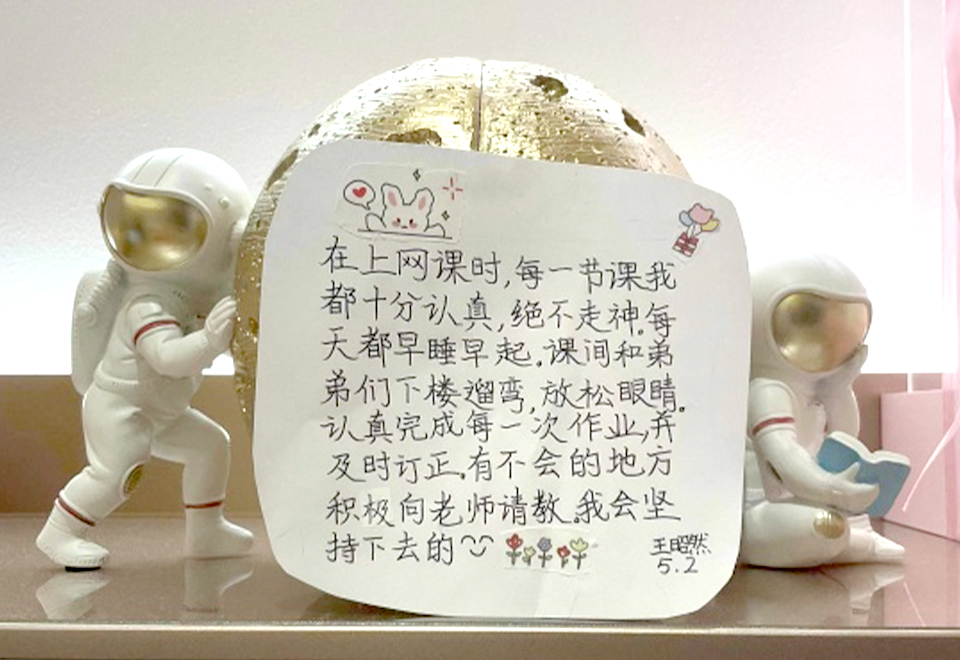 在上网课时,每一节课我
都十分认真,绝不走神。每
天都早睡早起。课间和弟
弟们下楼遛弯,放松眼睛。
认真完成每一次作业,并
及时订正。有不会的地方
积极向老师请教。我会坚
持下去的
王昭然
5.2